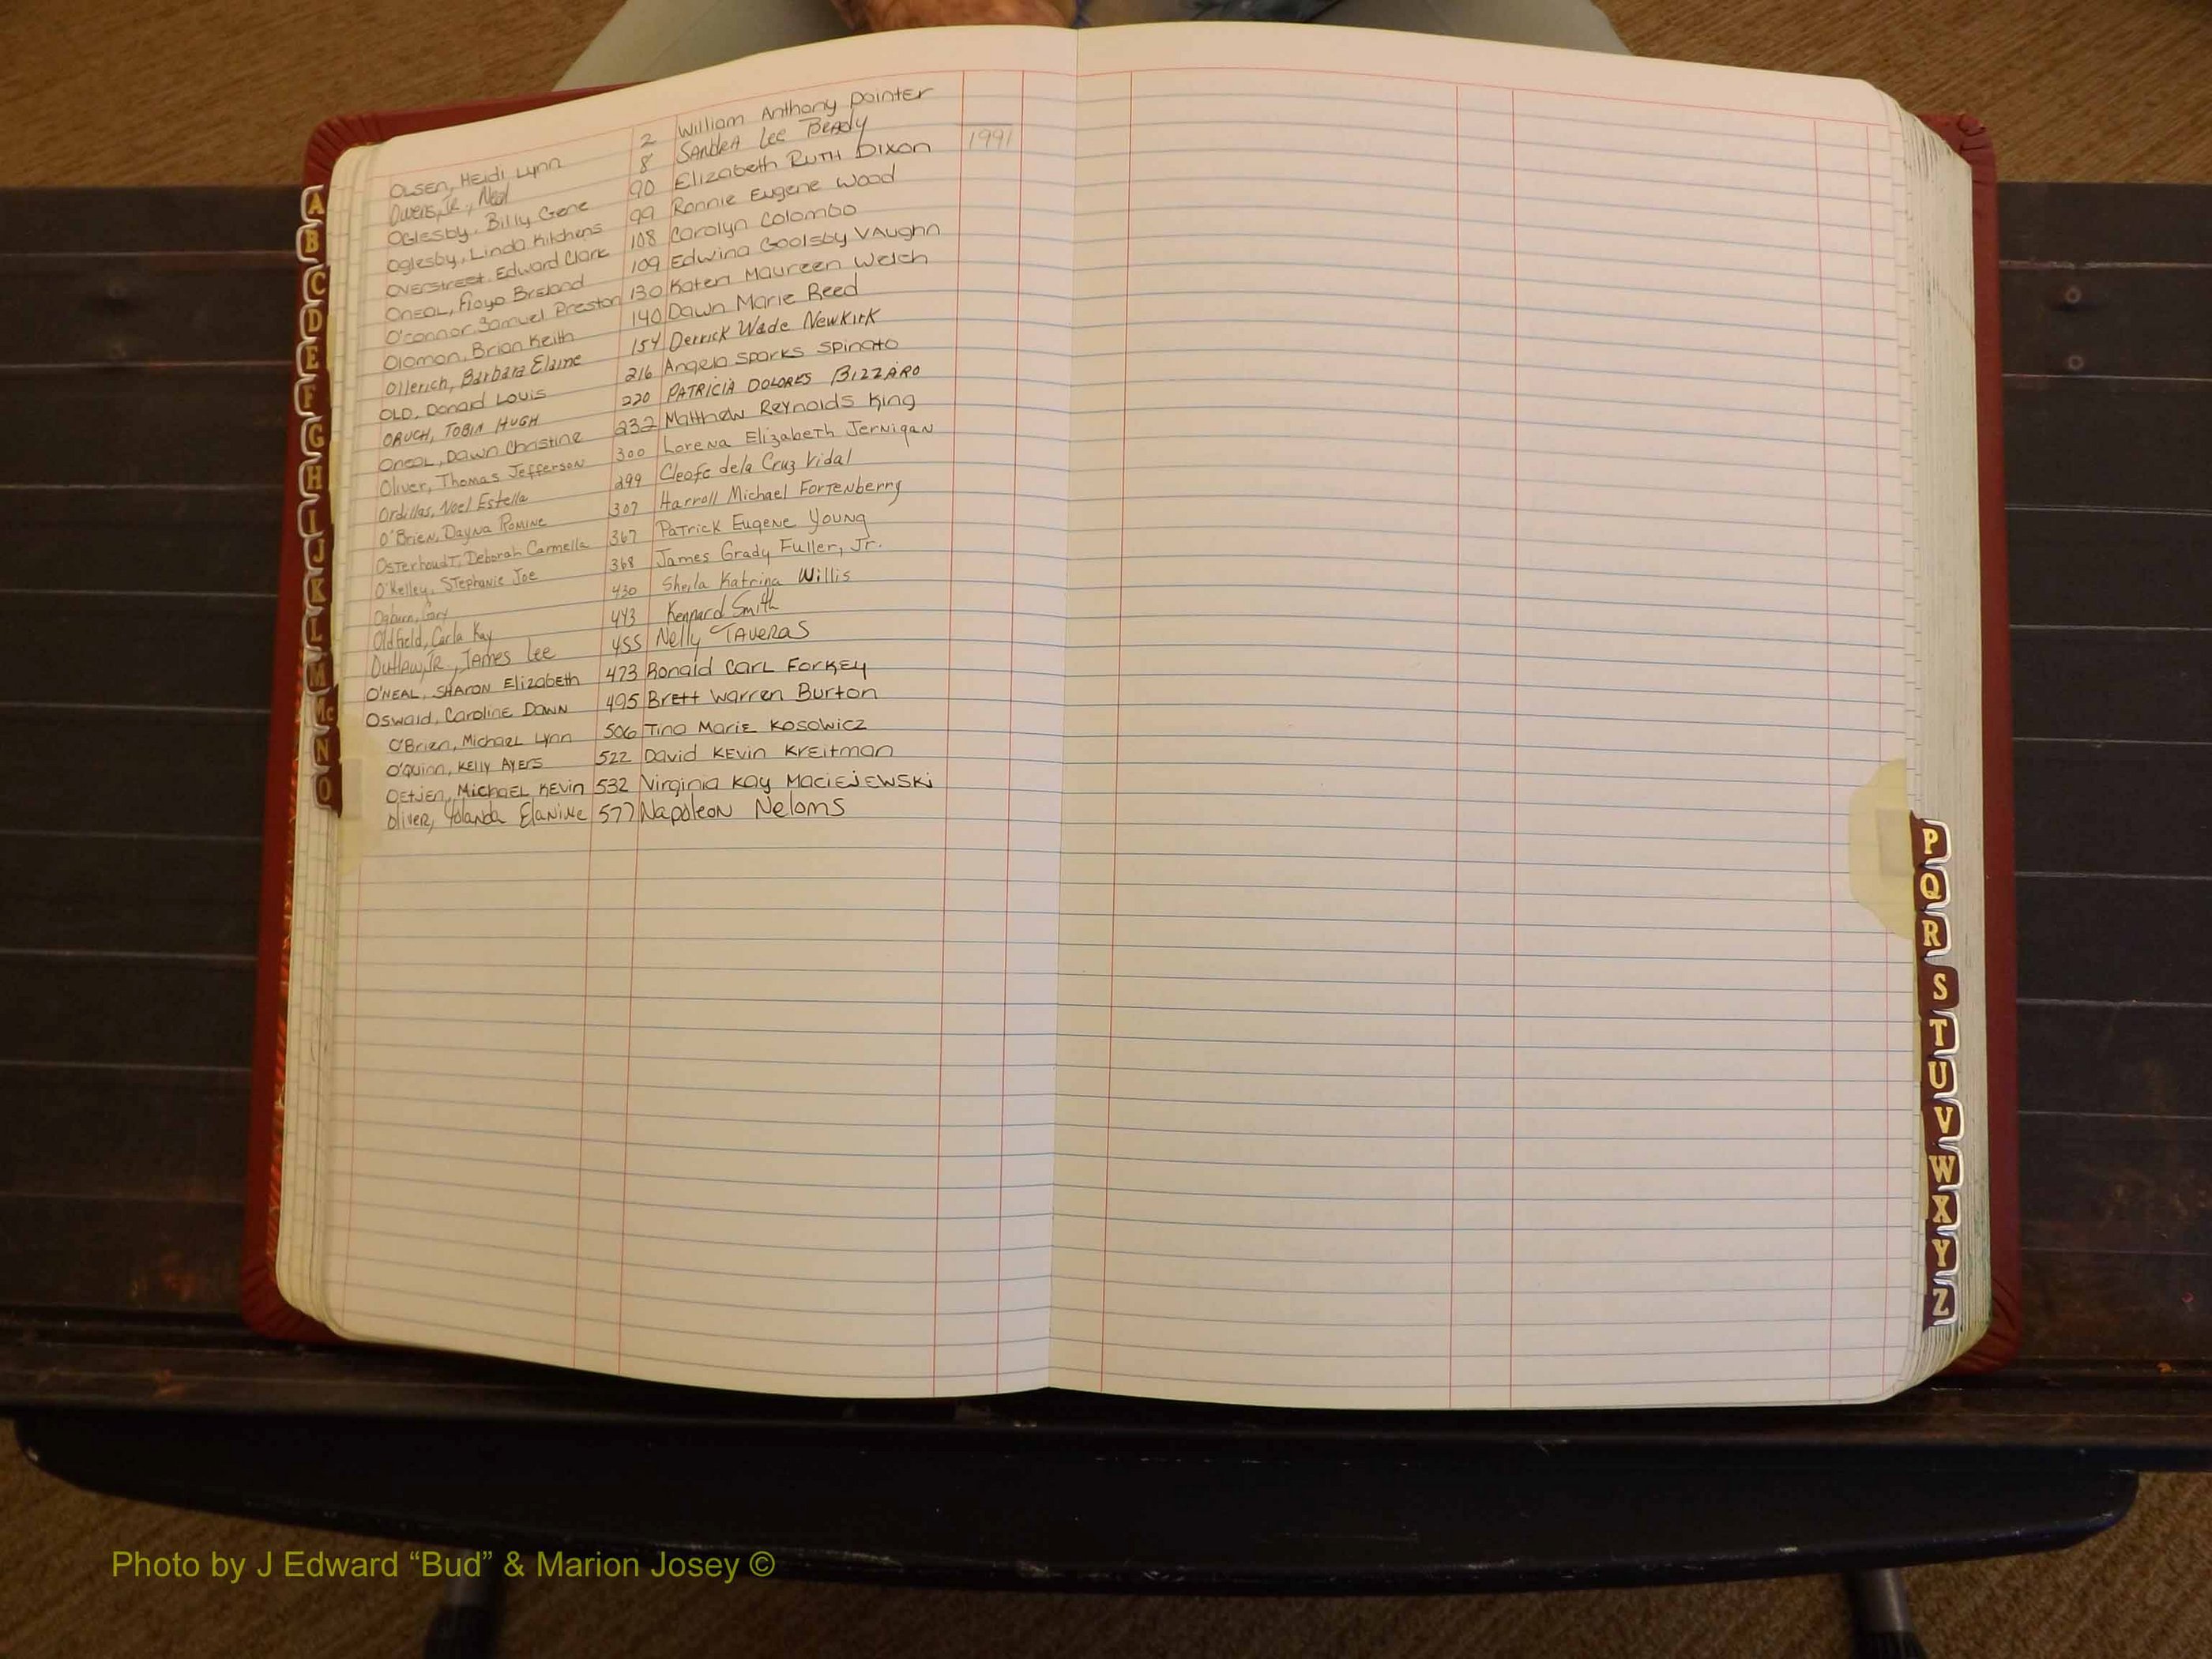 OLSEN, HEidi Lynn 2 William Anthony Pointer
Owens, JR., Neal 8 SANdRA Lee BEAdy
Oglesby, Billy Gene 90 Elizabeth RUTH Dixon 1991
Oglesby, Linda Kitchens 99 Ronnie Eugene Wood
OVErstreet, Edward Clark 108 Carolyn Colombo
ONEAL, Floyd BrEland 109 Edwina Goolsby VAughn
O'connor, Samuel Preston 130 Karen Maureen Welch
Oloman, Brian Keith 140 Dawn Marie Reed
Ollerich, Barbara Elaine 154 Derrick Wade Newkirk
OLD, Donald Louis 216 Angela Sparks Spinato
ORUCH, TOBIN HUGH 220 PATRICIA DOLORES BIZZARO
ONEAL, Dawn Christine 232 Matthew Reynolds King
Oliver, Thomas Jefferson 300 Lorena Elizabeth Jernigan
Ordillas, Noel Estella 299 Cleofe dela Cruz Vidal
O'Brien, Dayna Romine 307 Harroll Michael Fortenberry
OsterhoudT, Deborah Carmella 367 Patrick Eugene Young
O'Kelley, Stephanie Joe 368 James Grady Fuller, Jr.
Ogburn, Gary 430 Sheila Katrina Willis
Oldfield, Carla Kay 443 Kennard Smith
Outlaw, JR., James Lee 455 Nelly TAveRAS
O'NEAL, SHAron Elizabeth 473 Ronald Carl Forkey
Oswald, Caroline Dawn 495 Brett Warren Burton
O'Brien, Michael Lynn 506 Tina Marie Kosowicz
O'Quinn, Kelly Ayers 522 David KEvin KrEitman
OEtjen, MichaEL KEvin 532 Virginia Kay MaciEjEWSki
Oliver, Yolanda Elanine 577 Napoleon Neloms
A
B
C
D
E
F
G
H
I
J
K
L
M
Mc
N
O
P
Q
R
S
T
U
V
W
X
Y
Z
Photo by J Edward “Bud” & Marion Josey ©